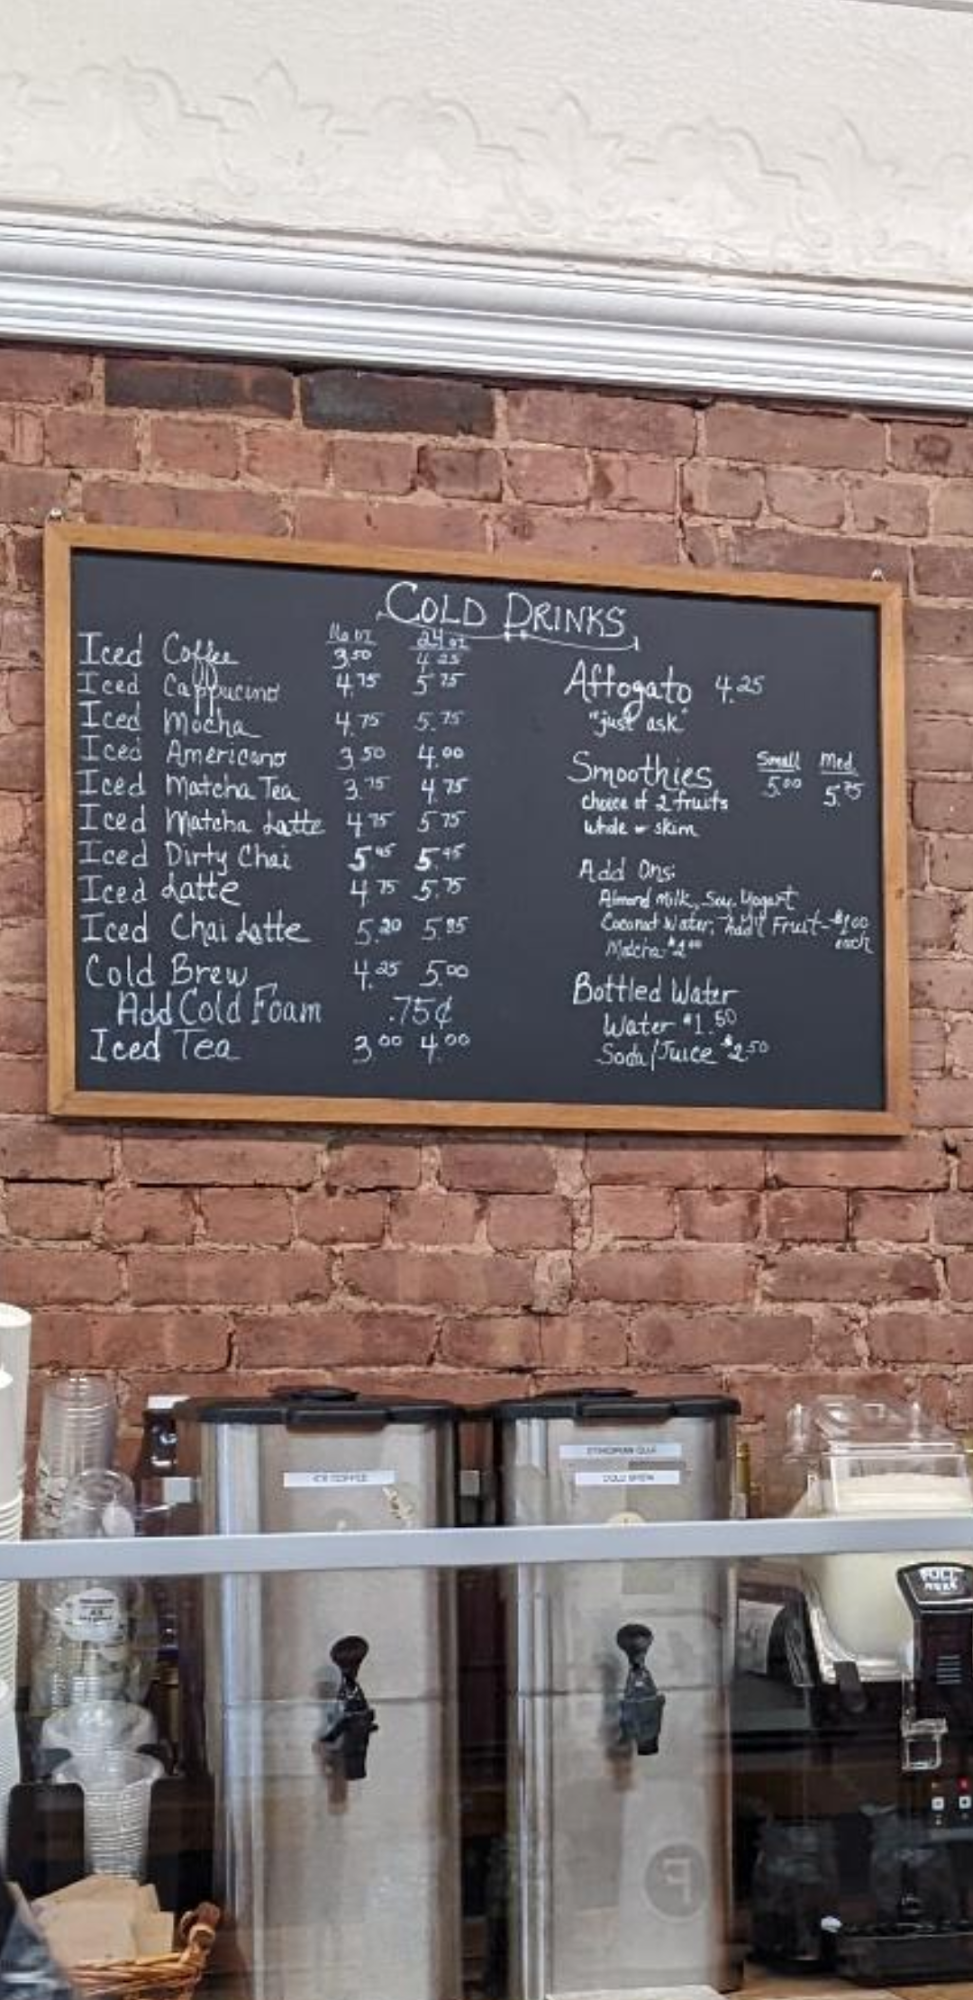 COLD DRINKS
16 oz 24 oz
Iced Coffee 3.50 4.25
Iced Cappucino 4.75 5.75
Iced Mocha 4.75 5.75
Iced Americano 3.50 4.00
Iced Matcha Tea 3.75 4.75
Iced Matcha Latte 4.75 5.75
Iced Dirty Chai 5.45 5.95
Iced Latte 4.75 5.75
Iced Chai Latte 5.20 5.85
Cold Brew 4.25 5.00
Add Cold Foam .75¢
Iced Tea 3.00 4.00
Affogato 4.25
"just ask"
Smoothies Small Med
5.00 5.75
choice of 2 fruits
whole or skim
Add Ons:
Almond Milk, Soy, Yogart
Coconut Water, Add'l Fruit-$1.00
each
Matcha $2.00
Bottled Water
Water $1.50
Soda/Juice $2.50
ICE COFFEE
COLD BREW
F